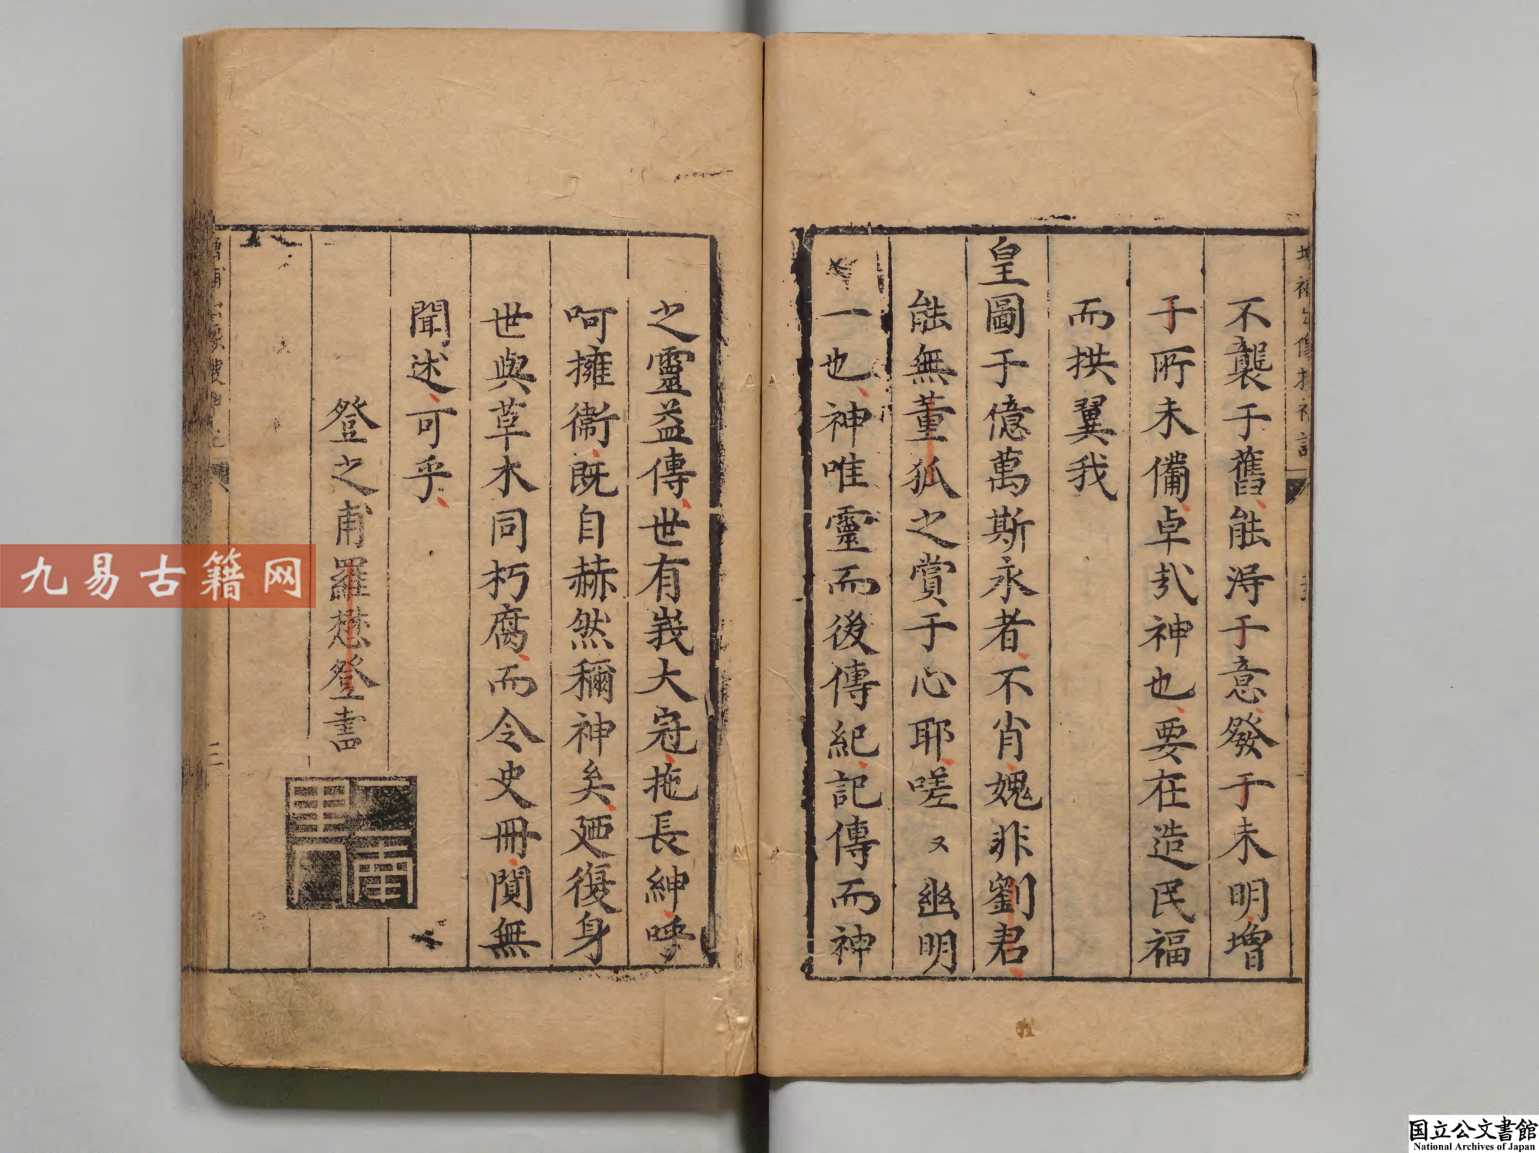 不襲于舊能淂于意發于未明增
于所未備卓㢤神也要在造民福
而拱翼我
皇圖于億萬斯永者不肖媿非劉君
能無董狐之賞于心耶嗟〻幽明
一也神唯靈而後傳紀記傳而神
之靈益傳世有峩大冠拖長紳呼
呵擁衞既自赫然稱神矣廼復身
世與草木同朽腐而令史冊閴無
聞述可乎
登之甫羅懋登書
三
九易古籍网
国立公文書館
National Archives of Japan